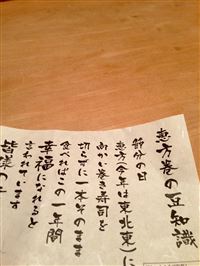 恵方巻の豆知識
節分の日
恵方(今年は東北東)に
向かい巻き寿司を
切らずに一本そのまま
食べればこの一年間
幸福になれると
言われています
皆様の